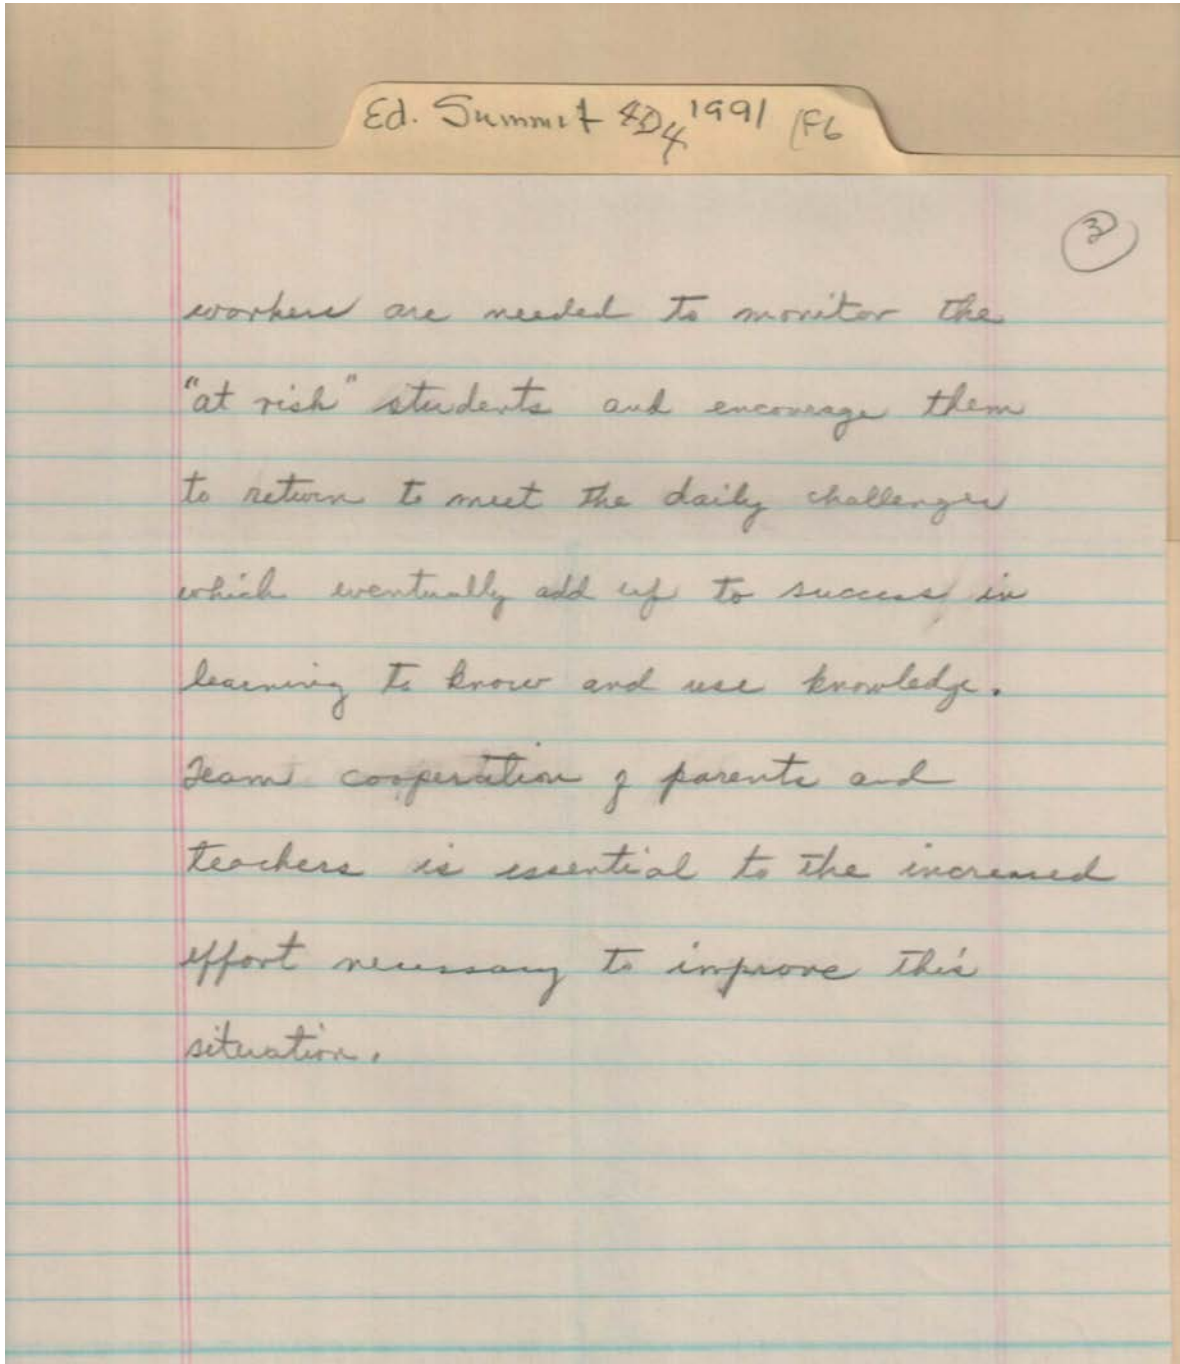 Ed. Summit 4D4 1991 (F6
3
workers are needed to monitor the
"at risk" students and encourage them
to return to meet the daily challenges
which eventually add up to success in
learning to know and use knowledge.
Team cooperation of parents and
teachers is essential to the increased
effort necessary to improve this
situation.